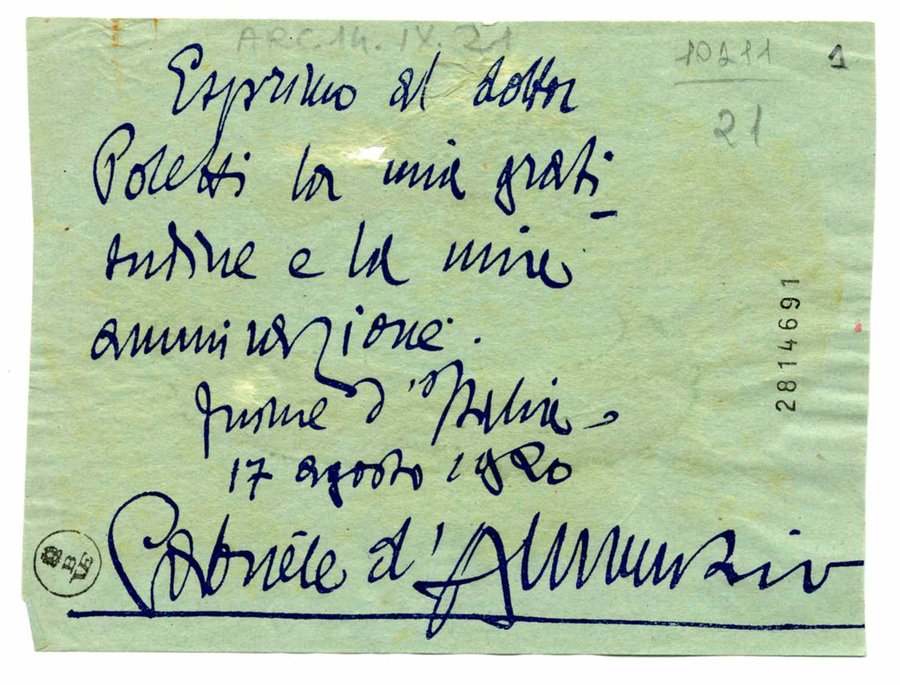 ARC. 14. IX. 21
10211
21
1
Esprimo al dottor
Poletti la mia grati-
tudine e la mia
ammirazione.
Fiume d'Italia -
17 agosto 1920
Gabriele d'Annunzio
2814691